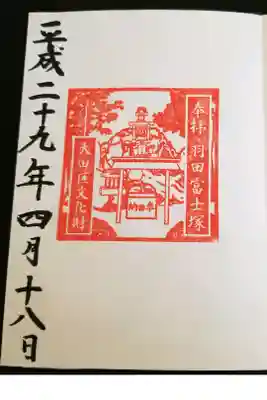 奉拝 羽田富士塚
大田区文化財
奉納
平成二十九年四月十八日